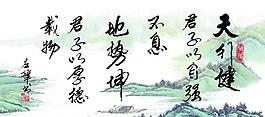 天行健
君子以自强
不息
地势坤
君子以厚德
载物